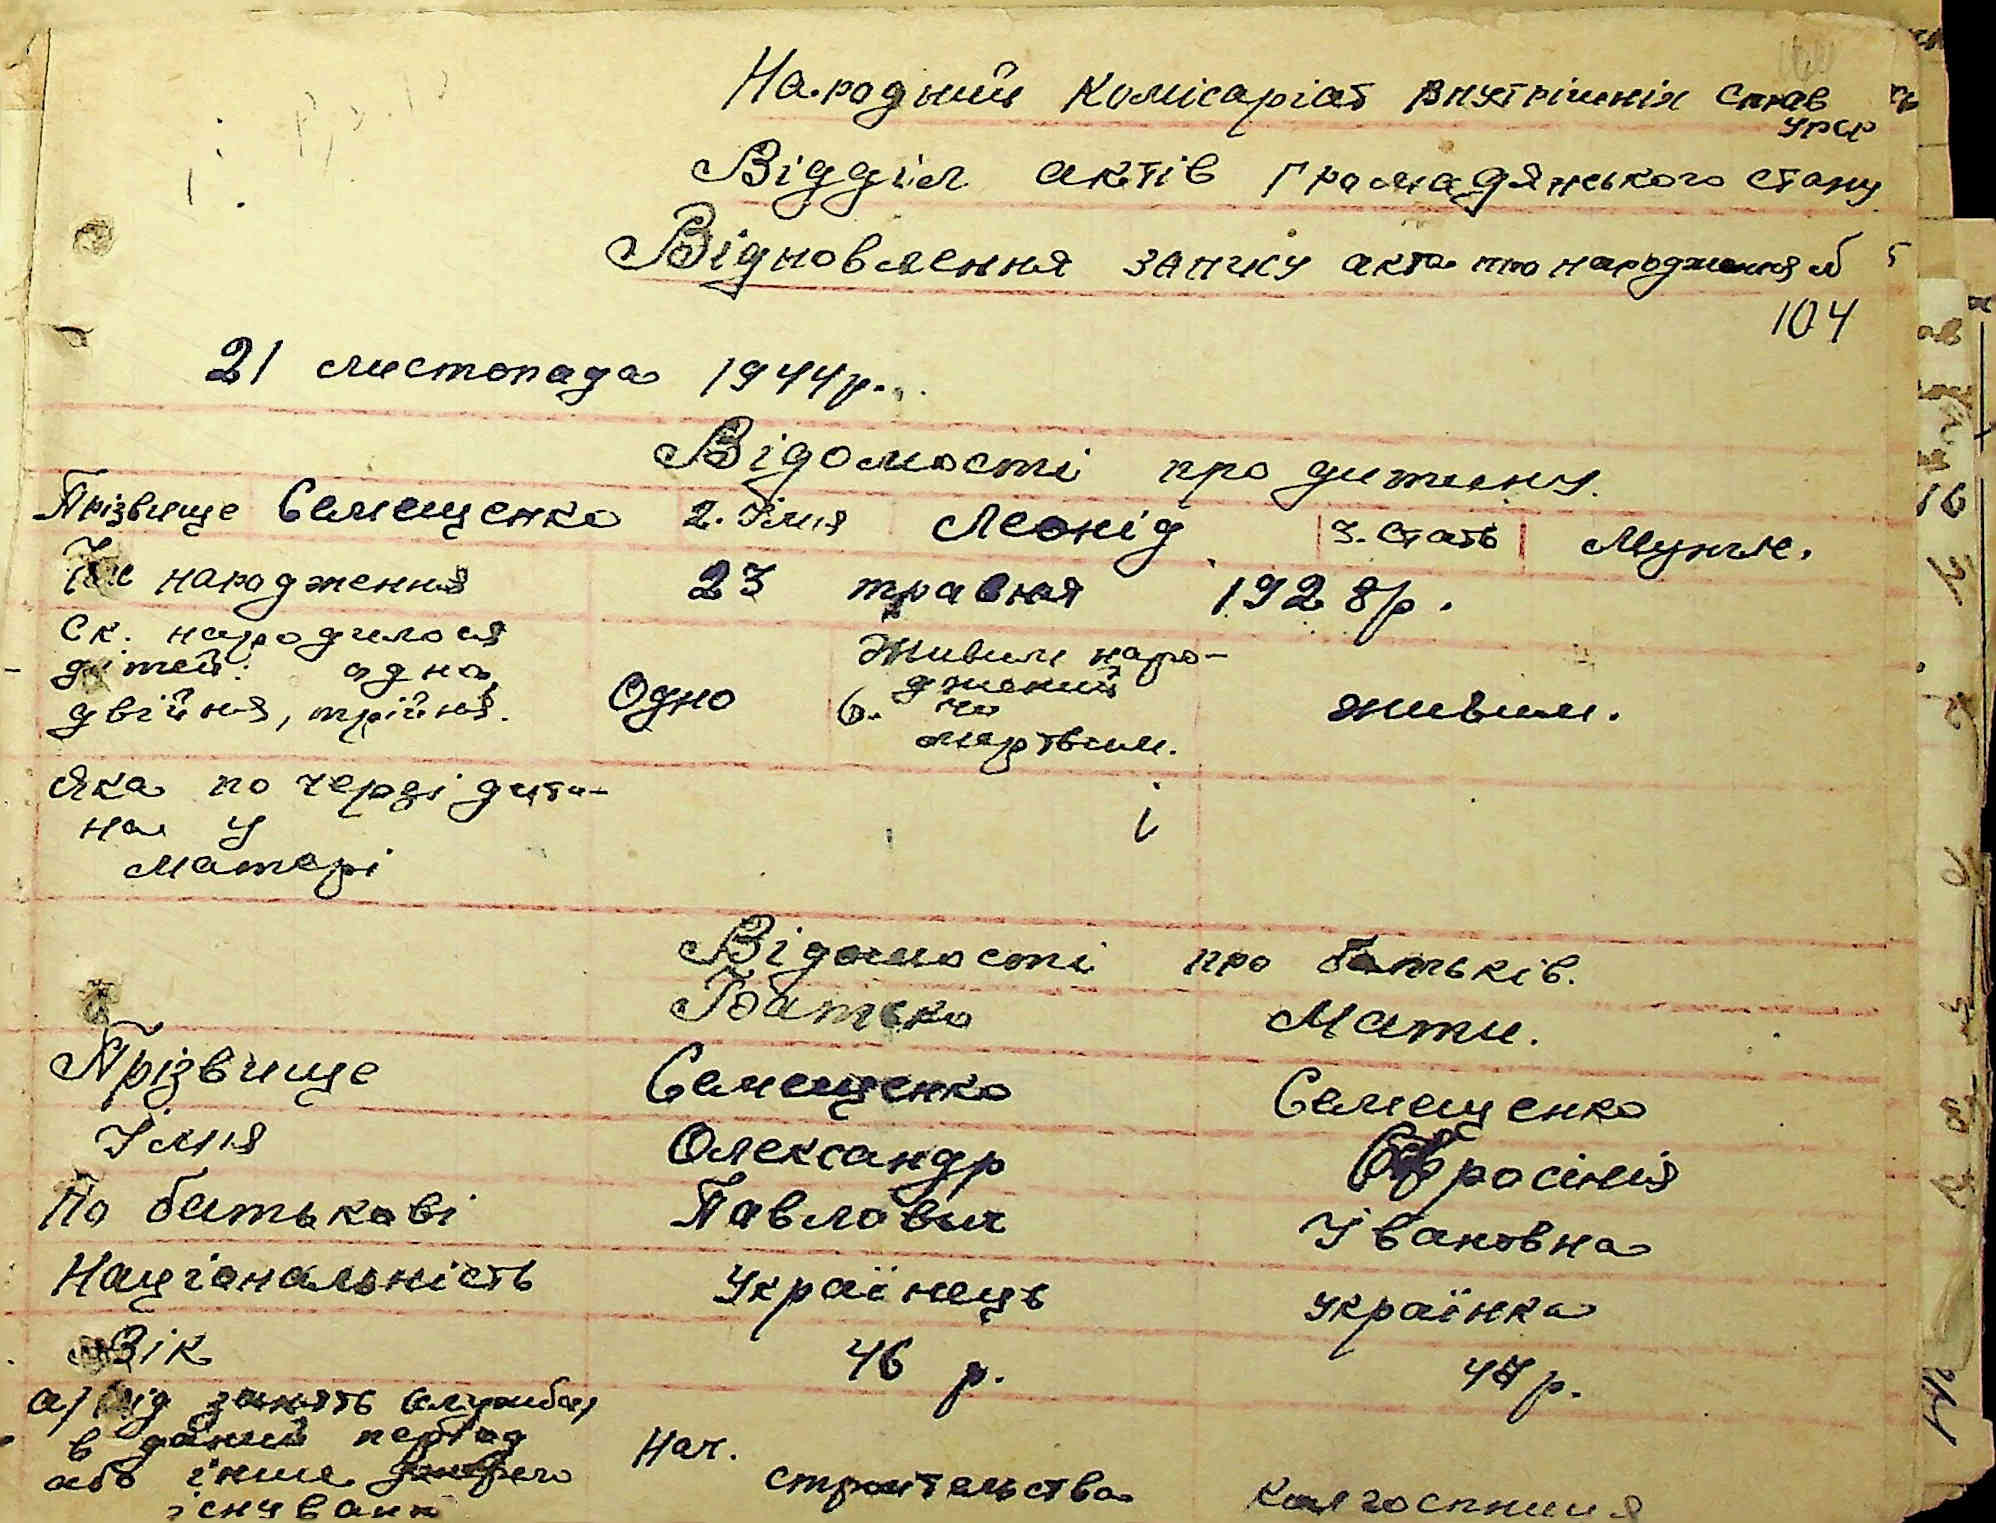 Народний Комісаріат Внутрішніх Справ
УРСР
Відділ актів громадянського стану
Відновлення запису акта про народження №
104
21 листопада 1944р.
Відомості про дитину.
Прізвище Семещенко 2. Імя Леонід 3. Стать Мужч.
Час народження 23 травня 1928р.
Ск. народилося
дітей: одна, двійня, трійня. Одно
6. Живим наро-
дженний
чи
мертвим. живим.
Яка по черзі дити-
на у
матері 1
Відомості про батьків.
Батько Мати.
Прізвище Семещенко Семещенко
Імя Олександр Єфросінія
По батькові Павлович Івановна
Національність Українець Українка
Вік 46 р. 47р.
а/ Рід занять службы
в даний період
або інше джерело
існуванн
Нач.
строительства колгоспниця